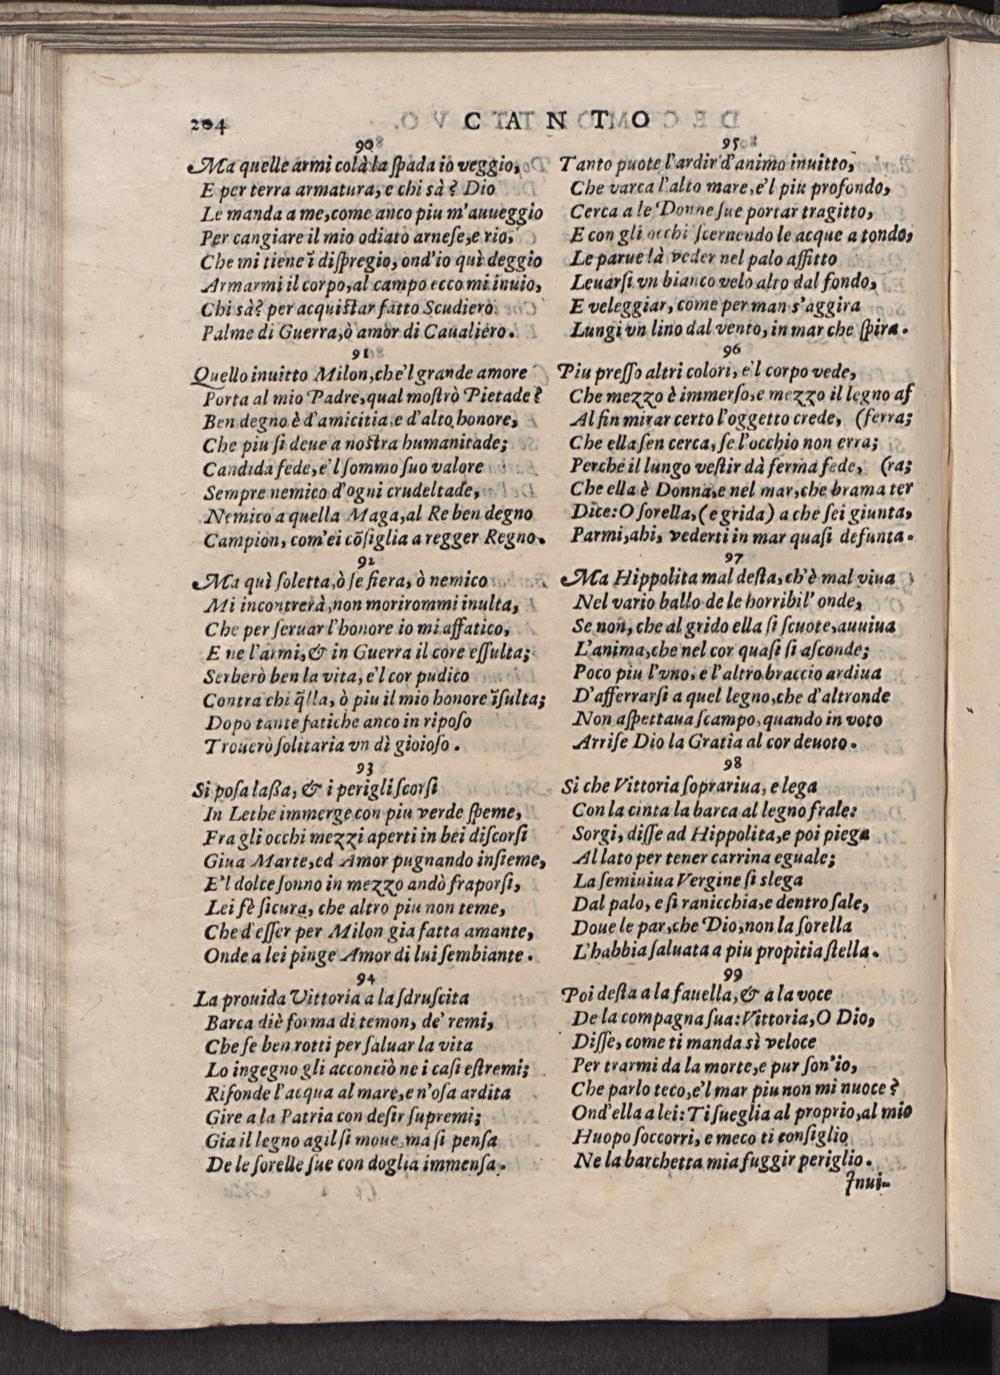 204 CANTO
90
Ma quelle armi colà la ſpada io veggio,
E per terra armatura, e chi sà? Dio
Le manda a me, come anco piu m'auueggio
Per cangiare il mio odiato arneſe, e rio,
Che mi tiene ĩ diſpregio, ond'io quì deggio
Armarmi il corpo, al campo ecco mi inuio,
Chi sà? per acquiſtar fatto Scudiero
Palme di Guerra, ò amor di Caualiero.
91
Quello inuitto Milon, che'l grande amore
Porta al mio Padre, qual moſtrò Pietade?
Ben degno è d'amicitia, e d'alto honore,
Che piu ſi deue a noſtra humanitade;
Candida fede, e'l ſommo ſuo valore
Sempre nemico d'ogni crudeltade,
Nemico a quella Maga, al Re ben degno
Campion, com'ei cõſiglia a regger Regno.
92
Ma quì ſoletta, ò ſe fiera, ò nemico
Mi incontrerà, non morirommi inulta,
Che per ſeruar l'honore io mi affatico,
E ne l'armi, & in Guerra il core eſſulta;
Serberò ben la vita, e'l cor pudico
Contra chi q̃lla, ò piu il mio honore ĩſulta;
Dopo tante fatiche anco in ripoſo
Trouerò ſolitaria vn dì gioioſo.
93
Si poſa laßa, & i perigli ſcorſi
In Lethe immerge con piu verde ſpeme,
Fra gli occhi mezzi aperti in bei diſcorſi
Giua Marte, ed Amor pugnando inſieme,
E'l dolce ſonno in mezzo andò fraporſi,
Lei fè ſicura, che altro piu non teme,
Che d'eſſer per Milon gia fatta amante,
Onde a lei pinge Amor di lui ſembiante.
94
La prouida Vittoria a la ſdruſcita
Barca diè forma di temon, de' remi,
Che ſe ben rotti per ſaluar la vita
Lo ingegno gli acconciò ne i caſi eſtremi;
Rifonde l'acqua al mare, e n'oſa ardita
Gire a la Patria con deſir ſupremi;
Gia il legno agil ſi moue, ma ſi penſa
De le ſorelle ſue con doglia immenſa.
95
Tanto puote l'ardir d'animo inuitto,
Che varca l'alto mare, e'l piu profondo,
Cerca a le Donne ſue portar tragitto,
E con gli occhi ſcernendo le acque a tondo,
Le parue là veder nel palo affitto
Leuarſi vn bianco velo alto dal fondo,
E veleggiar, come per man s'aggira
Lungi vn lino dal vento, in mar che ſpira.
96
Piu preſſo altri colori, e'l corpo vede,
Che mezzo è immerſo, e mezzo il legno af
Al fin mirar certo l'oggetto crede, (ferra;
Che ella ſen cerca, ſe l'occhio non erra;
Perche il lungo veſtir dà ferma fede, (ra;
Che ella è Donna, e nel mar, che brama ter
Dice: O ſorella, (e grida) a che ſei giunta,
Parmi, ahi, vederti in mar quaſi defunta.
97
Ma Hippolita mal deſta, ch'è mal viua
Nel vario ballo de le horribil' onde,
Se non, che al grido ella ſi ſcuote, auuiua
L'anima, che nel cor quaſi ſi aſconde;
Poco piu l'vno, e l'altro braccio ardiua
D'afferrarſi a quel legno, che d'altronde
Non aſpettaua ſcampo, quando in voto
Arriſe Dio la Gratia al cor deuoto.
98
Si che Vittoria ſoprariua, e lega
Con la cinta la barca al legno frale:
Sorgi, diſſe ad Hippolita, e poi piega
Al lato per tener carrina eguale;
La ſemiuiua Vergine ſi slega
Dal palo, e ſi ranicchia, e dentro ſale,
Doue le par, che Dio, non la ſorella
L'habbia ſaluata a piu propitia ſtella.
99
Poi deſta a la fauella, & a la voce
De la compagna ſua: Vittoria, O Dio,
Diſſe, come ti manda sì veloce
Per trarmi da la morte, e pur ſon'io,
Che parlo teco, e'l mar piu non mi nuoce?
Ond'ella a lei: Ti ſueglia al proprio, al mio
Huopo ſoccorri, e meco ti conſiglio
Ne la barchetta mia fuggir periglio.
Inui-